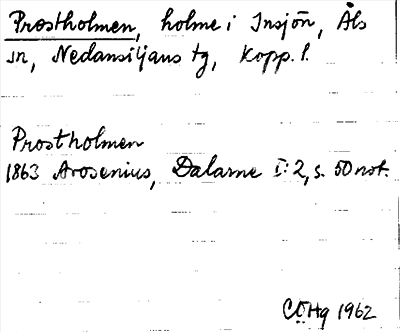 Prostholmen, holme i Insjön, Åls
sn, Nedansiljans tg, Kopp. l.
Prostholmen
1863 Arosenius, Dalarne I:2, s. 50 not.
CÖHg 1962